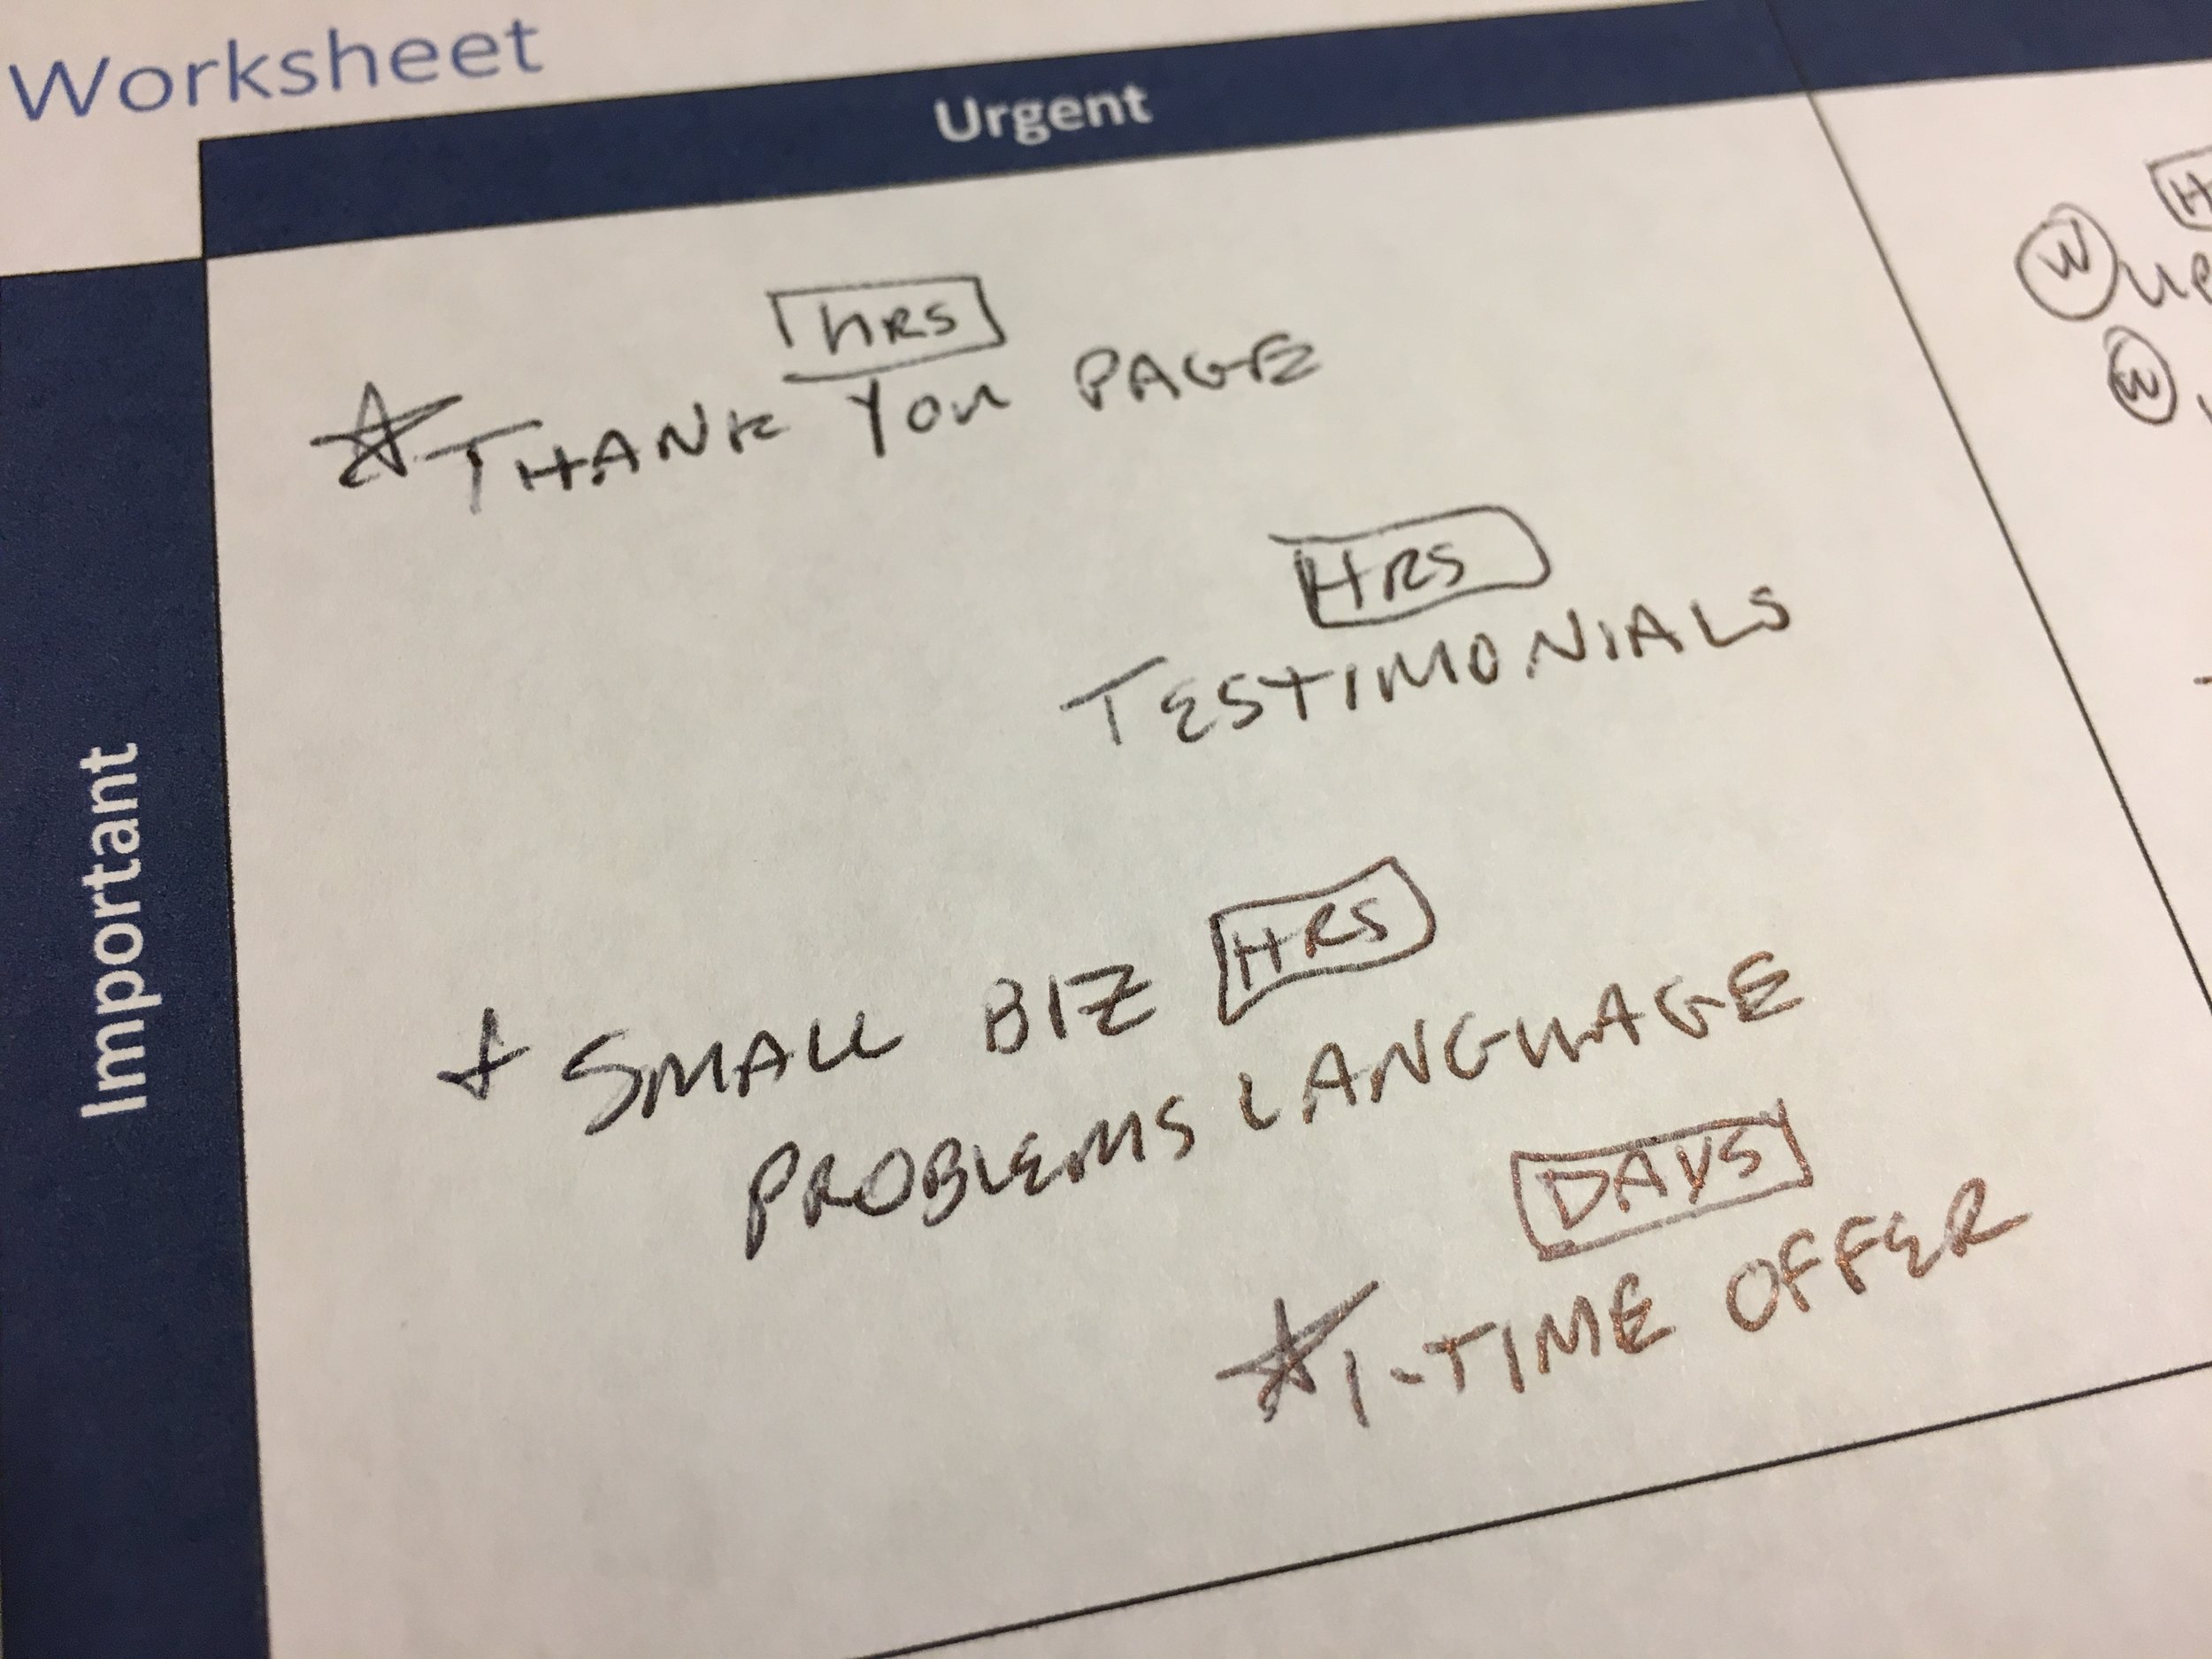 Worksheet
Urgent
Important
HRS
THANK YOU PAGE
HRS
TESTIMONIALS
HRS
SMALL BIZ
PROBLEMS LANGUAGE
DAYS
1-TIME OFFER
W
W